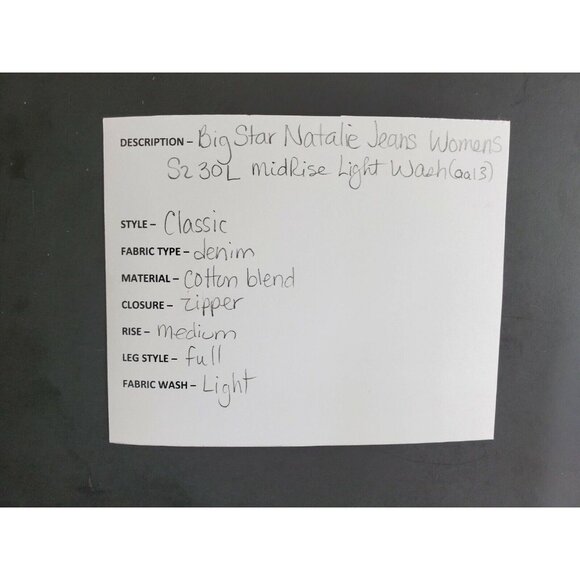 DESCRIPTION – Big Star Natalie Jeans Womens
Sz 30L midRise Light Wash (aa13)
STYLE – Classic
FABRIC TYPE – denim
MATERIAL – cotton blend
CLOSURE – zipper
RISE – medium
LEG STYLE – full
FABRIC WASH – Light